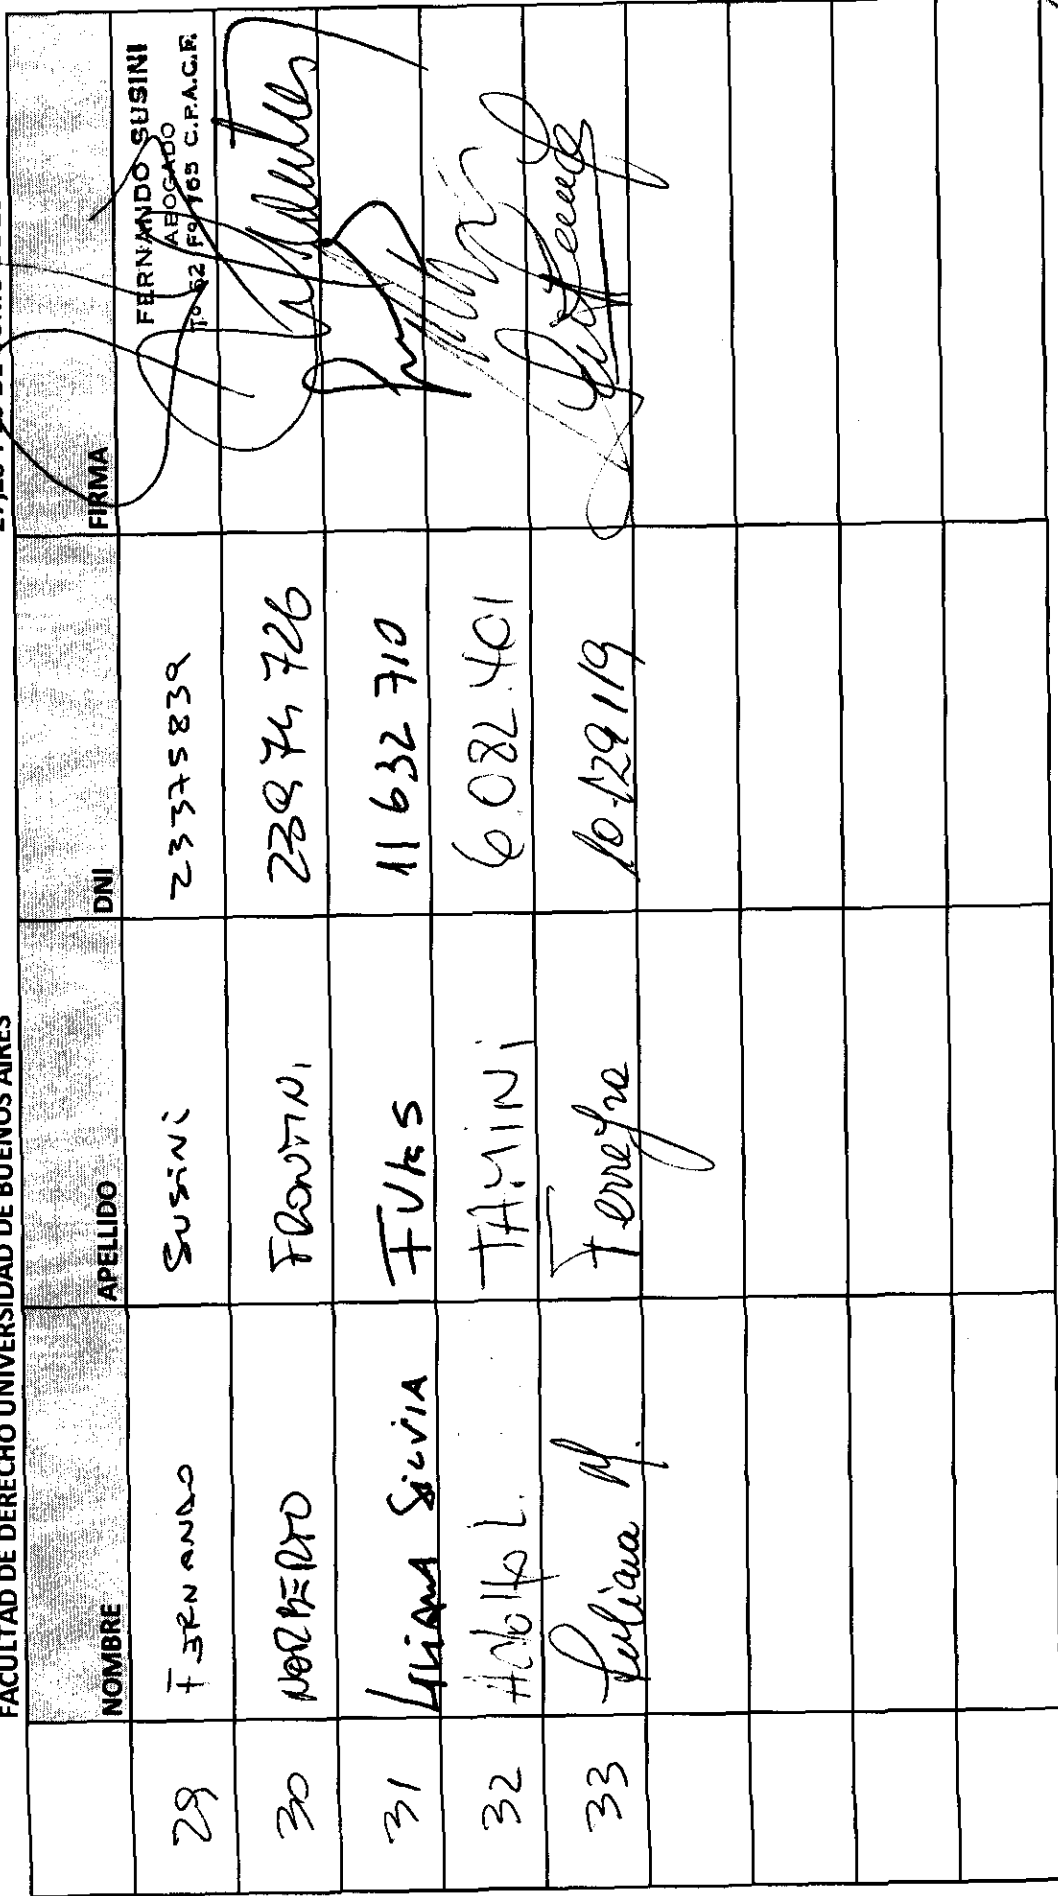 FACULTAD DE DERECHO UNIVERSIDAD DE BUENOS AIRES
NOMBRE APELLIDO DNI FIRMA
29 FERNANDO SUSINI 23375839
FERNANDO SUSINI
ABOGADO
C.P.A.C.F.
30 NORBERTO FRONTINI 23974726
31 Liliana Silvia FUks 11 632 710
32 Adolfo L. TAMINI 6.082.401
33 Juliana M. Ferreyra 10.129119